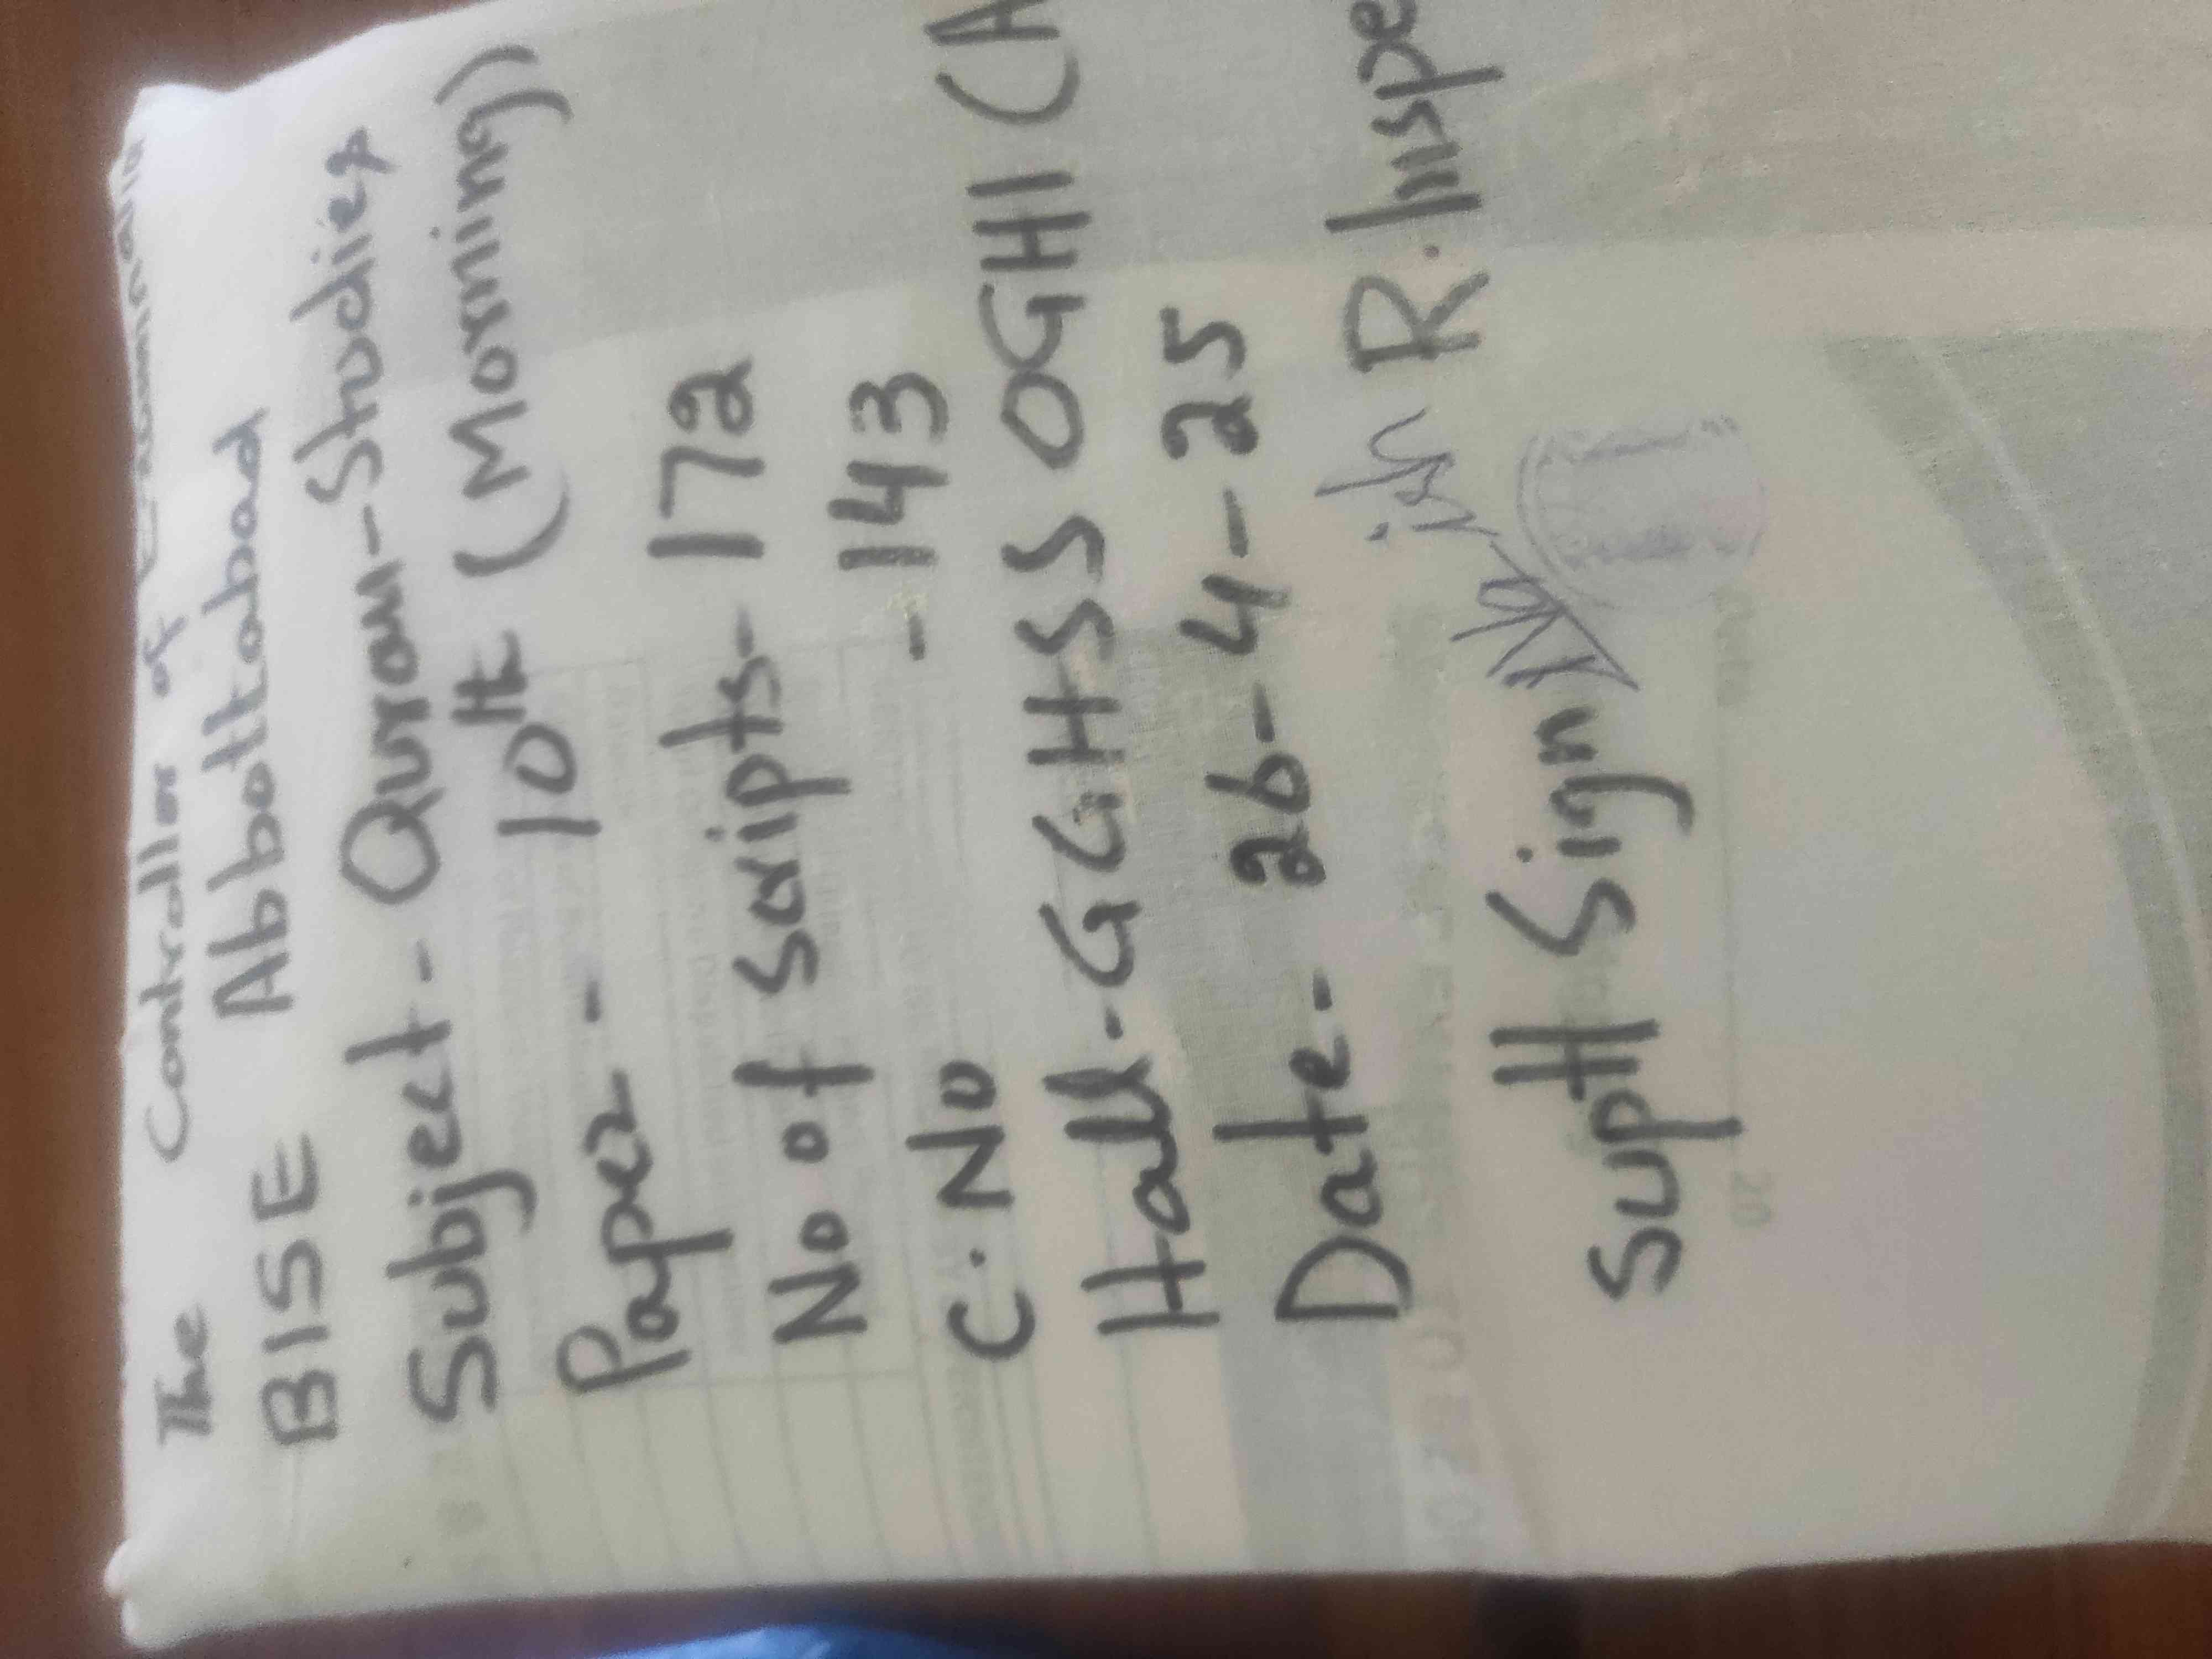 The Controller of Examination
BISE Abbottabad
Subject - Quran-Studies
Paper - 10th (Morning)
No of scripts - 172
C.No - 143
Hall - GGHSS OGHI (A
Date - 26-4-25
Supt Sign R.Inspe